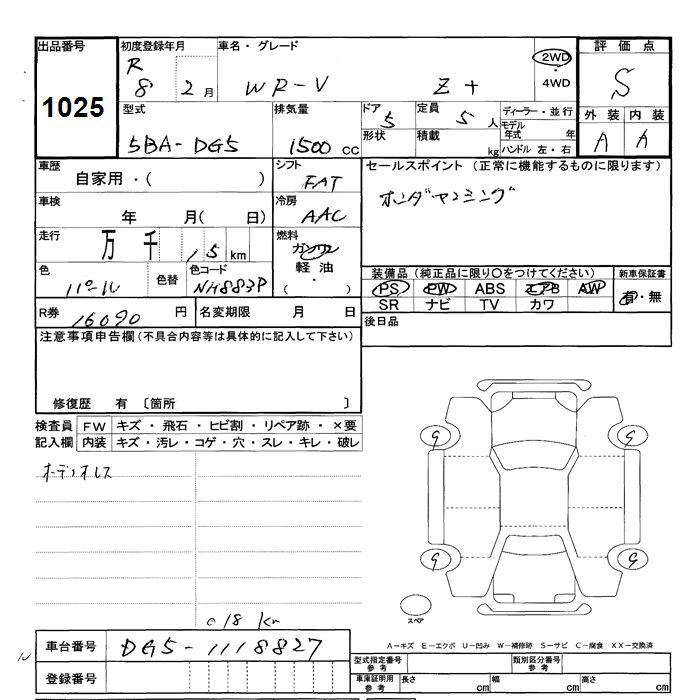 出品番号
1025
初度登録年月
R 8 2月
車名・グレード
WR-V Z+
2WD
・
4WD
評価点
S
型式
5BA-DG5
排気量
1500 cc
ドア 5
形状
定員 5 人
積載 kg
ディーラー・並行
モデル年式 年
ハンドル 左・右
外装 内装
A A
車歴
自家用・( )
シフト
FAT
セールスポイント(正常に機能するものに限ります)
ホンダセンシング
車検
年 月( 日)
冷房
AAC
走行
万 千 15 km
燃料
ガソリン
軽油
( ・ )
色
パール
色替
色コード
NH883P
装備品(純正品に限り〇をつけてください)
新車保証書
PS PW ABS エアB AW
有・無
SR ナビ TV カワ
R券
16090 円
名変期限 月 日
後日品
注意事項申告欄(不具合内容等は具体的に記入して下さい)
修復歴 有 〔箇所 〕
検査員 FW キズ・飛石・ヒビ割・リペア跡・×要
記入欄 内装 キズ・汚レ・コゲ・穴・スレ・キレ・破レ
オーディオレス
9 9
9 9
スペア
018 km
A−キズ E−エクボ U−凹み W−補修跡 S−サビ C−腐食 XX−交換済
車台番号
DG5-1118827
登録番号
型式指定番号 参考
類別区分番号 参考
車庫証明用 参考
長さ cm 幅 cm 高さ cm